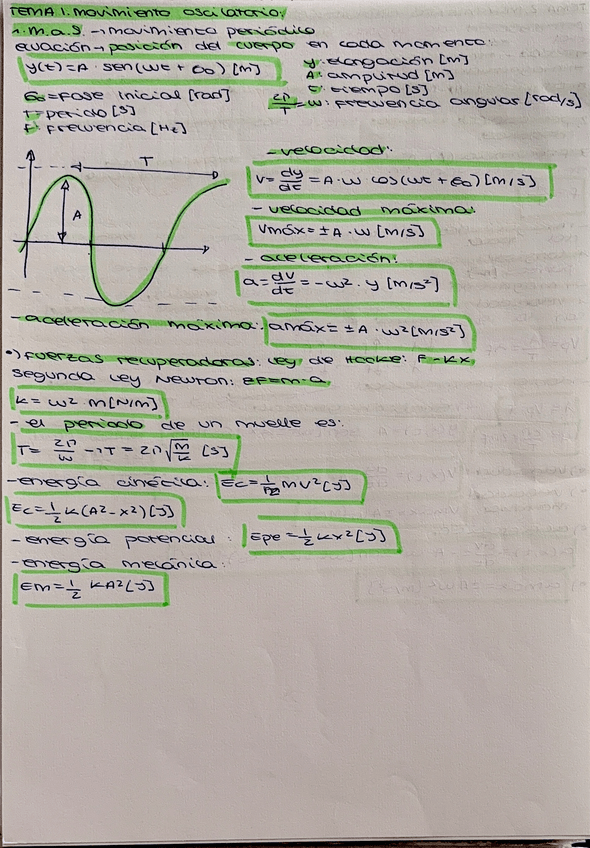 TEMA 1. movimiento oscilatorio:
m.a.s. → movimiento periódico
ecuación → posición del cuerpo en cada momento:
y(t) = A · sen(ωt + φ₀) [m]
y: elongación [m]
A: amplitud [m]
t: tiempo [s]
2π/T = ω: frecuencia angular [rad/s]
φ₀ = fase inicial [rad]
T = periodo [s]
f: frecuencia [Hz]
T
A
- velocidad:
v = dy/dt = A · ω cos(ωt + φ₀) [m/s]
- velocidad máxima:
vmáx = ± A · ω [m/s]
- aceleración:
a = dv/dt = -ω² · y [m/s²]
- aceleración máxima: amáx = ± A · ω² [m/s²]
•) fuerzas recuperadoras: ley de Hooke: F = -Kx
segunda ley Newton: ΣF = m · a
K = ω² · m [N/m]
- el periodo de un muelle es:
T = 2π/ω → T = 2π√(m/k) [s]
- energía cinética: Ec = 1/2 mv² [J]
Ec = 1/2 k(A² - x²) [J]
- energía potencial: Epe = 1/2 kx² [J]
- energía mecánica:
Em = 1/2 KA² [J]